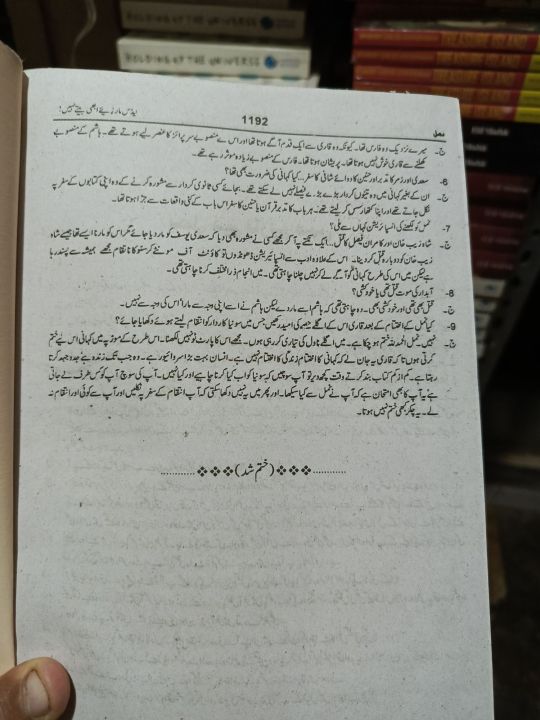 HOLDING UP THE UNIVERSE
HOLDING UP THE UNIVERSE
نمل
1192
ج۔ میرے نزدیک وہ فارس تھا۔ کیونکہ وہ قاری سے ایک قدم آگے ہوتا تھا اور اس کے منصوبے سرپرائز کا عنصر لیے ہوتے تھے۔ ہاشم کے منصوبے
کھلنے سے قاری خوش نہیں ہوتا تھا۔ پریشان ہوتا تھا۔ فارس کے منصوبے زیادہ موثر رہے تھے۔
6۔ سعدی اور زمر کا تدبر اور حنین کا دوائے شافی کا سفر۔ کیا کہانی کی ضرورت بھی تھا؟
ج۔ ان کے بغیر کہانی میں وہ تینوں کردار بڑے بڑے فیصلے نہیں لے سکتے تھے۔ بجائے کسی ثانوی کردار سے مشورہ کرنے کے وہ اپنی کتابوں کے سفر پہ
نکل جاتے تھے اور اپنا کتھارسس کر لیتے تھے۔ ہر باب کا تدبر قرآن یا حنین کا سفر اس باب کے کئی واقعات سے جڑا ہوتا تھا۔
7۔ نمل کو لکھنے کی انسپائریشن کہاں سے ملی؟
ج۔ شاہ زیب خان اور کامران فیصل کا قتل... ایک نکتے پہ آ کر مجھے کسی نے مشورہ بھی دیا کہ سعدی یوسف کو مار دیا جائے مگر اس کو مارنا ایسے تھا جیسے شاہ
زیب خان کو دوبارہ قتل کر دینا۔ اس کے علاوہ ادب سے انسپائریشن ڈھونڈوں تو کاؤنٹ آف مونٹے کرسٹو کا نظام مجھے ہمیشہ سے پسند رہا
ہے لیکن میں اس کی طرح کہانی کو آگے لے کر نہیں چلنا چاہتی تھی۔ میں انجام ذرا مختلف کرنا چاہتی تھی۔
8۔ آبدار کی موت قتل تھی یا خودکشی؟
ج۔ قتل بھی تھی اور خودکشی بھی۔ وہ چاہتی تھی کہ ہاشم اسے مار دے لیکن ہاشم نے اسے اپنی وجہ سے مارا' اس کی وجہ سے نہیں۔
9۔ کیا نمل کے اختتام کے بعد قاری اس کے اگلے حصے کی امید رکھیں جس میں سونیا کاردار کو انتقام لیتے ہوئے دکھایا جائے؟
ج۔ نہیں نمل الحمدللہ ختم ہو چکا ہے۔ میں اگلے ناول کی تیاری کر رہی ہوں۔ مجھے اس کا پارٹ ٹو نہیں لکھنا۔ اس طرح کے موڑ پہ میں کہانی اس لیے ختم
کرتی ہوں تاکہ قاری یہ جان لے کہ کہانی کا اختتام زندگی کا اختتام نہیں ہے۔ انسان بہت بڑا سروائیور ہے۔ وہ جب تک زندہ ہے جدوجہد کرتا
رہتا ہے۔ کم از کم کتاب بند کرتے وقت کچھ دیر تو آپ سوچیں کہ سونیا کو اب کیا کرنا چاہیے اور کیا نہیں۔ آپ کی سوچ آپ کو کس طرف لے جاتی
ہے' یہ آپ کا بھی امتحان ہے کہ آپ نے نمل سے کیا سیکھا۔ اور پھر میں یہ نہیں دکھا سکتی کہ آپ انتقام کے سفر پہ نکلیں اور آپ سے کوئی اور انتقام نہ
لے۔ یہ چکر کبھی ختم نہیں ہوتا۔
(ختم شد)